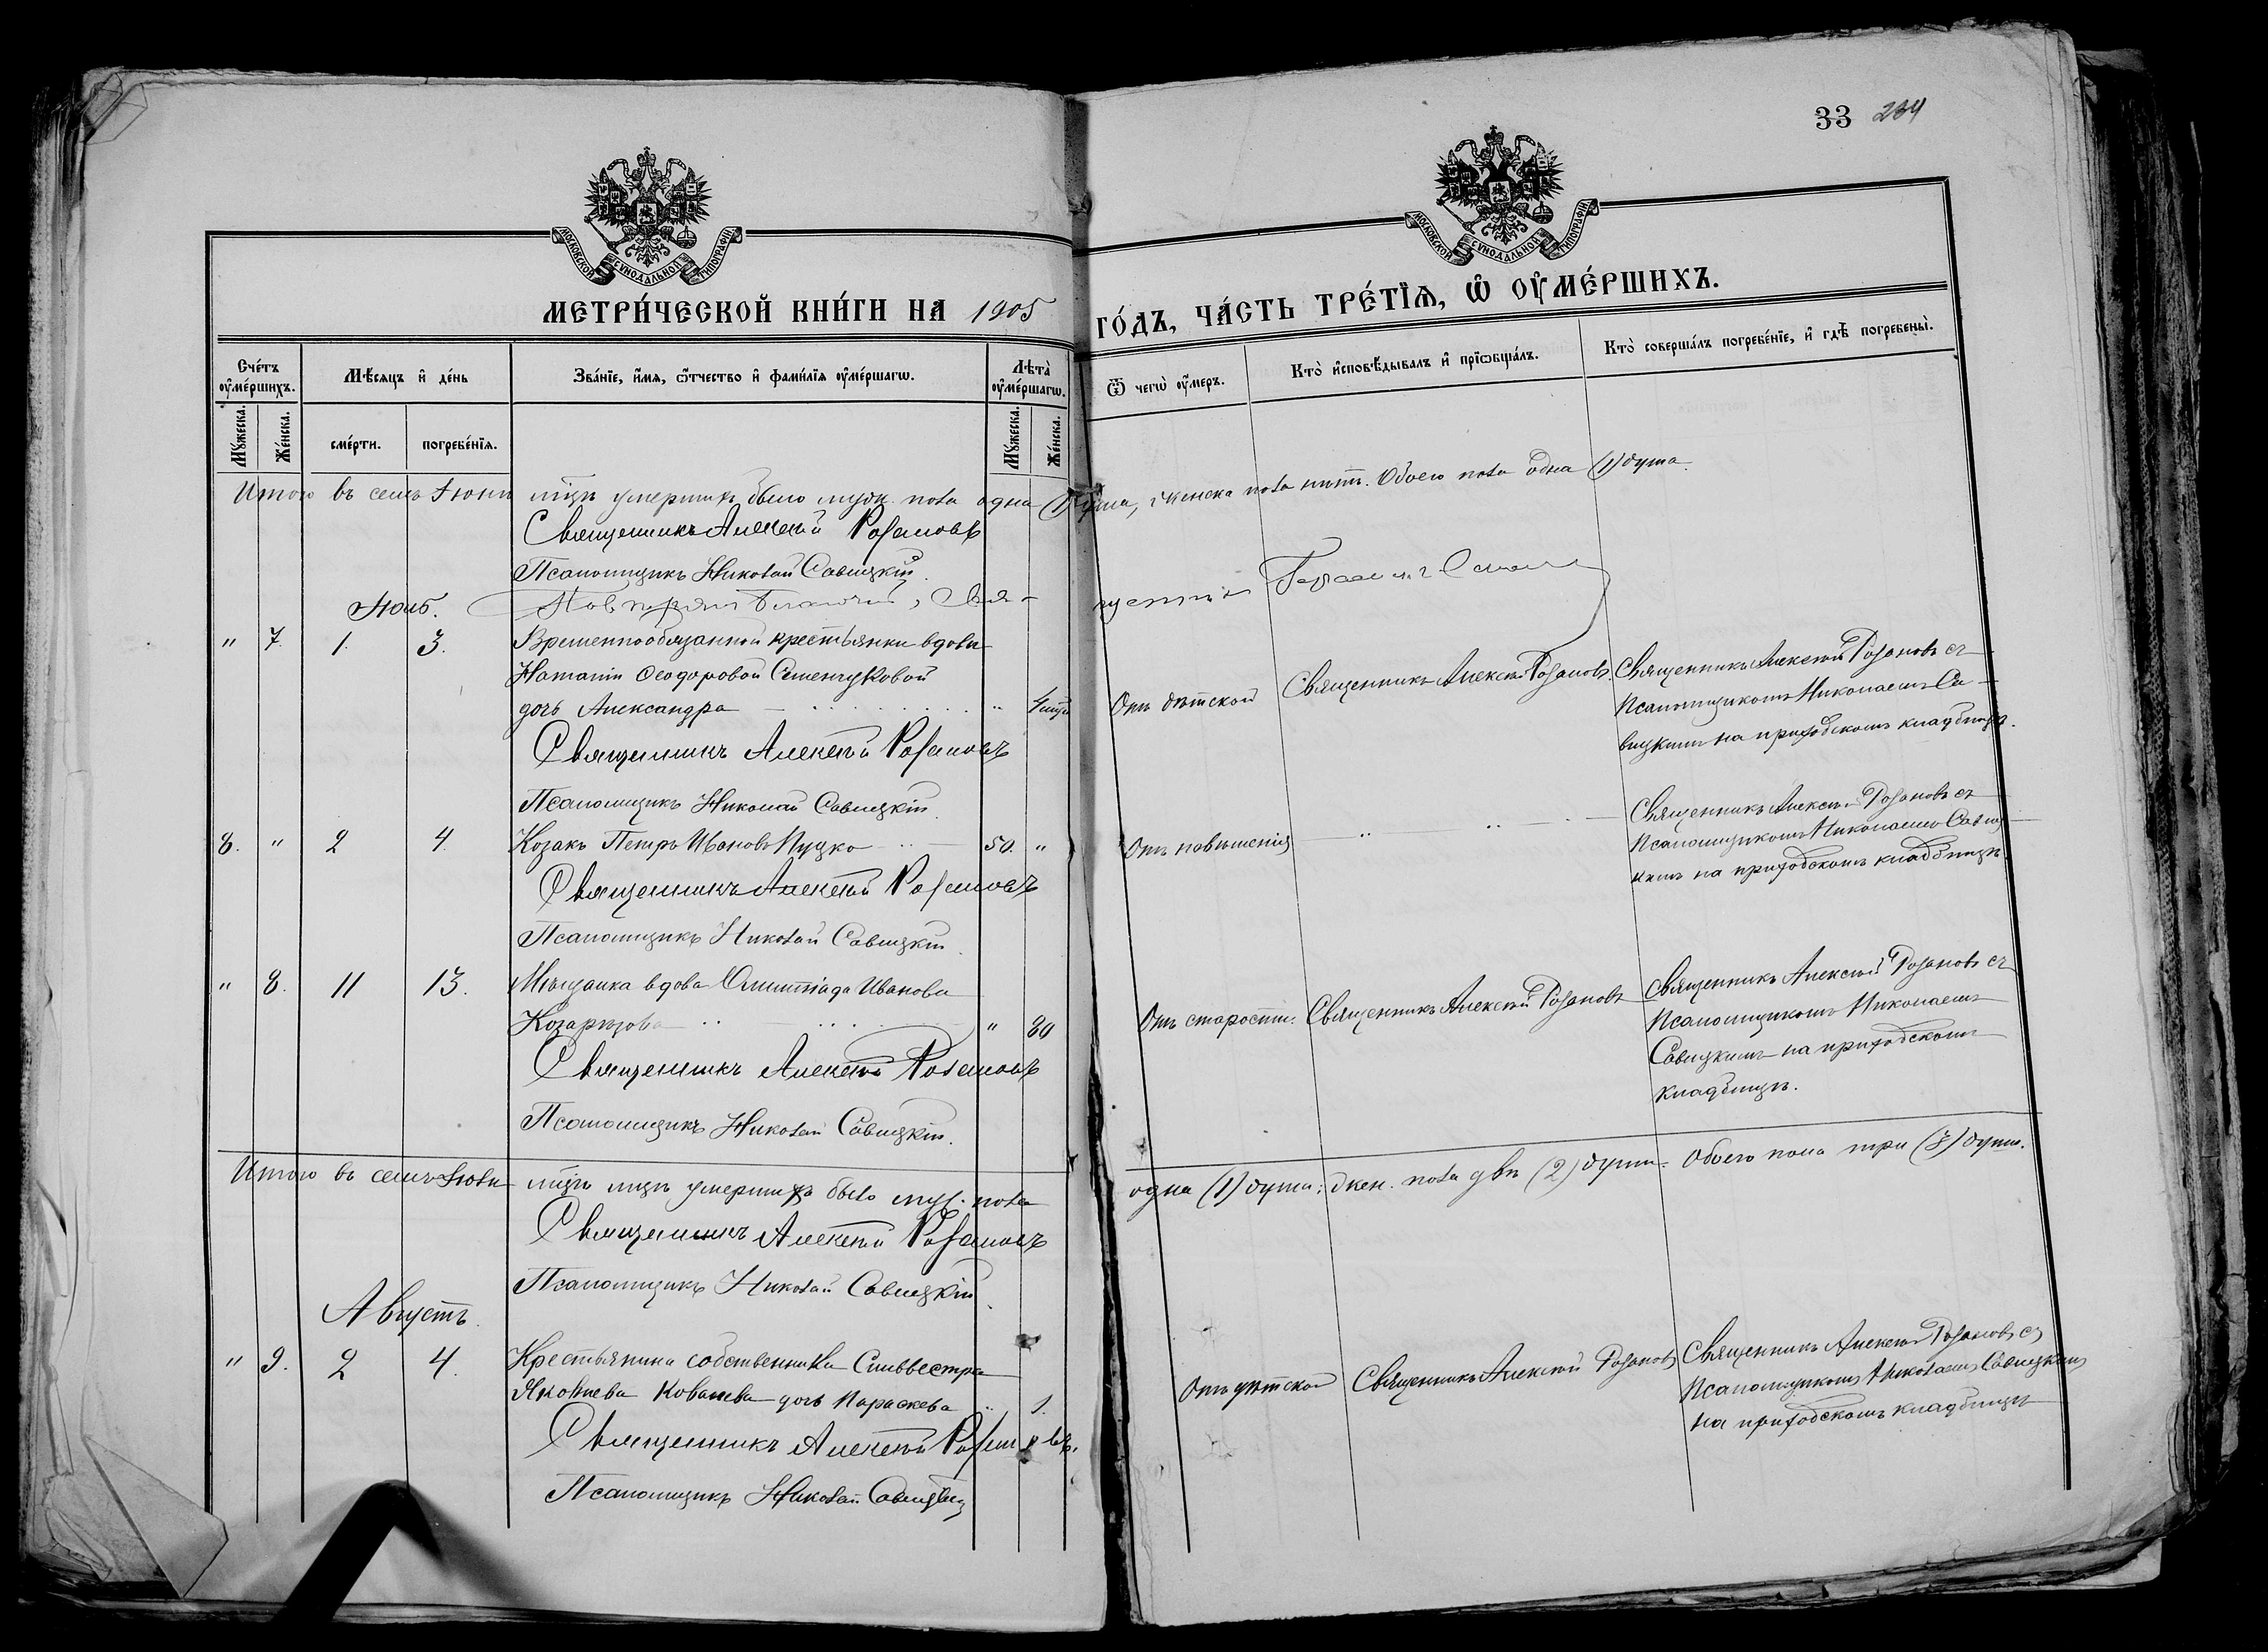 33 234
МОСКОВСКОЙ СѴНОДАЛЬНОЙ ТИПОГРАФІИ
МОСКОВСКОЙ СѴНОДАЛЬНОЙ ТИПОГРАФІИ
МЕТРИ́ЧЕСКОЙ КНИ́ГИ НА 1905 ГО́ДЪ, ЧА́СТЬ ТРЕ́ТЇѦ, Ѡ҆ ОУ҆МЕ́РШИХЪ.
Сче́тъ оу҆ме́ршихъ.
Мѣ́сяцъ и҆ де́нь
Зва́нїе, и҆́мѧ, ѻ҆́тчество и҆ фами́лїѧ оу҆ме́ршагѡ.
Лѣ́та оу҆ме́ршагѡ.
Ѿ чегѡ̀ оу҆́меръ.
Кто̀ и҆сповѣ́дывалъ и҆ прїѡбща́лъ.
Кто̀ соверша́лъ погребе́нїе, и҆ гдѣ̀ погребены̀.
Мꙋ́жеска. Же́нска. сме́рти. погребе́нїѧ. Мꙋ́жеска. Же́нска.
Итого въ семъ Іюнѣ мѣсяцѣ умершихъ было муж. пола одна (1) душа, женска пола нѣтъ. Обоего пола одна (1) душа.
Священникъ Алексѣй Розановъ
Псаломщикъ Николай Савицкій.
Іюль.
" 7. 1. 3. Временнообязанной крестьянки вдовы
Наталіи Ѳеодоровой Семенчуковой
дочь Александра " Отъ дѣтской Священникъ Алексѣй Розановъ. Священникъ Алексѣй Розановъ съ
Псаломщикомъ Николаемъ Са-
вицкимъ на приходскомъ кладбищѣ.
Священникъ Алексѣй Розановъ
Псаломщикъ Николай Савицкій.
8. " 2 4. Козакъ Петръ Ивановъ 50. " Отъ " " Священникъ Алексѣй Розановъ съ
Псаломщикомъ Николаемъ Савиц-
кимъ на приходскомъ кладбищѣ.
Священникъ Алексѣй Розановъ
Псаломщикъ Николай Савицкій.
" 8. 11 13. Мѣщанка вдова Олимпіада Иванова
" 80 Отъ старости. Священникъ Алексѣй Розановъ Священникъ Алексѣй Розановъ съ
Псаломщикомъ Николаемъ
Савицкимъ на приходскомъ
кладбищѣ.
Священникъ Алексѣй Розановъ
Псаломщикъ Николай Савицкій.
Итого въ семъ Іюлѣ мѣсяцѣ умершихъ было муж. пола одна (1) душа; жен. пола двѣ (2) души. Обоего пола три (3) души.
Священникъ Алексѣй Розановъ
Псаломщикъ Николай Савицкій.
Августъ.
" 9. 2 4. Крестьянина собственника Сильвестра
Яковлева Ковалева дочь Параскева " 1. Отъ дѣтской Священникъ Алексѣй Розановъ Священникъ Алексѣй Розановъ съ
Псаломщикомъ Николаемъ Савицкимъ
на приходскомъ кладбищѣ
Священникъ Алексѣй Розановъ.
Псаломщикъ Николай Савицкій